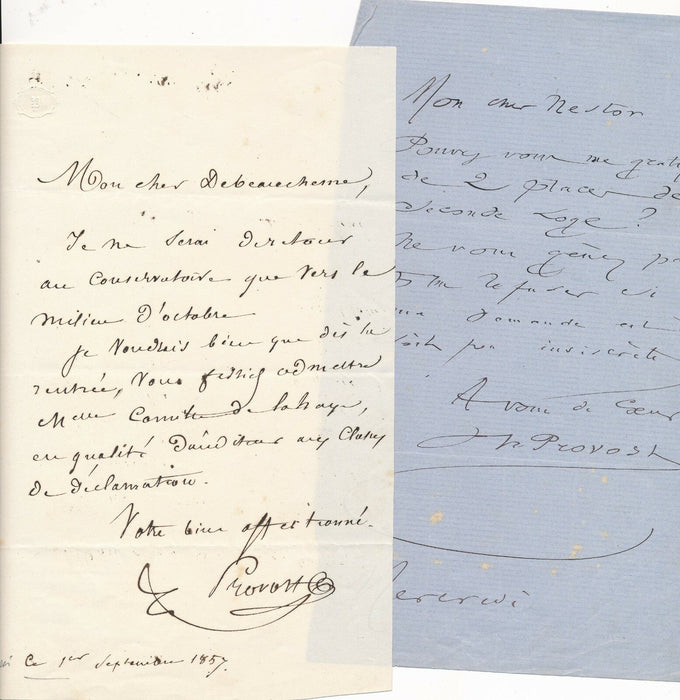 Mon cher Debeauchesne,
Je ne serai de retour
au Conservatoire que vers le
milieu d'octobre
Je voudrais bien que dès la
rentrée, vous fessiez admettre
Melle de Lahaye,
en qualité d'auditeur aux Classes
de déclamation.
Votre bien affectionné.
Provost
Ce 1er Septembre 1857.
Mon cher Nestor
Pouvez vous me
de 2 places de
Seconde Loge?
Ne vous gênez
me refuser si
demande est
indiscrète
A vous de Coeur
Provost
Mercredi